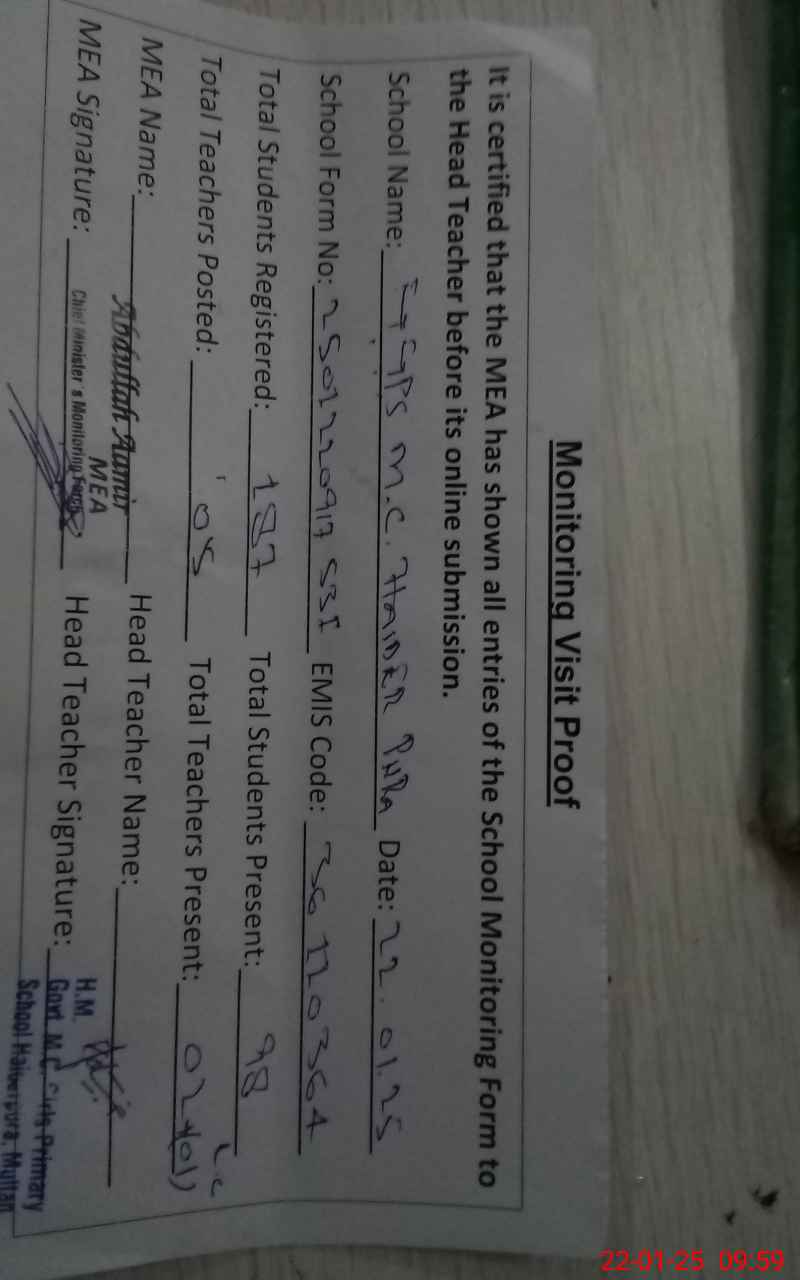 Monitoring Visit Proof
It is certified that the MEA has shown all entries of the School Monitoring Form to
the Head Teacher before its online submission.
School Name: M.C. HAIDER PURA Date: 22.01.25
School Form No: EMIS Code: 36120364
Total Students Registered: 187 Total Students Present: 98
Total Teachers Posted: 05 Total Teachers Present: 02
MEA Name: Abdullah Aamir Head Teacher Name:
MEA
MEA Signature: Chief Minister's Monitoring Force Head Teacher Signature:
H.M.
Govt. M.C. Girls Primary
School Haiderpura, Multan
22-01-25 09:59